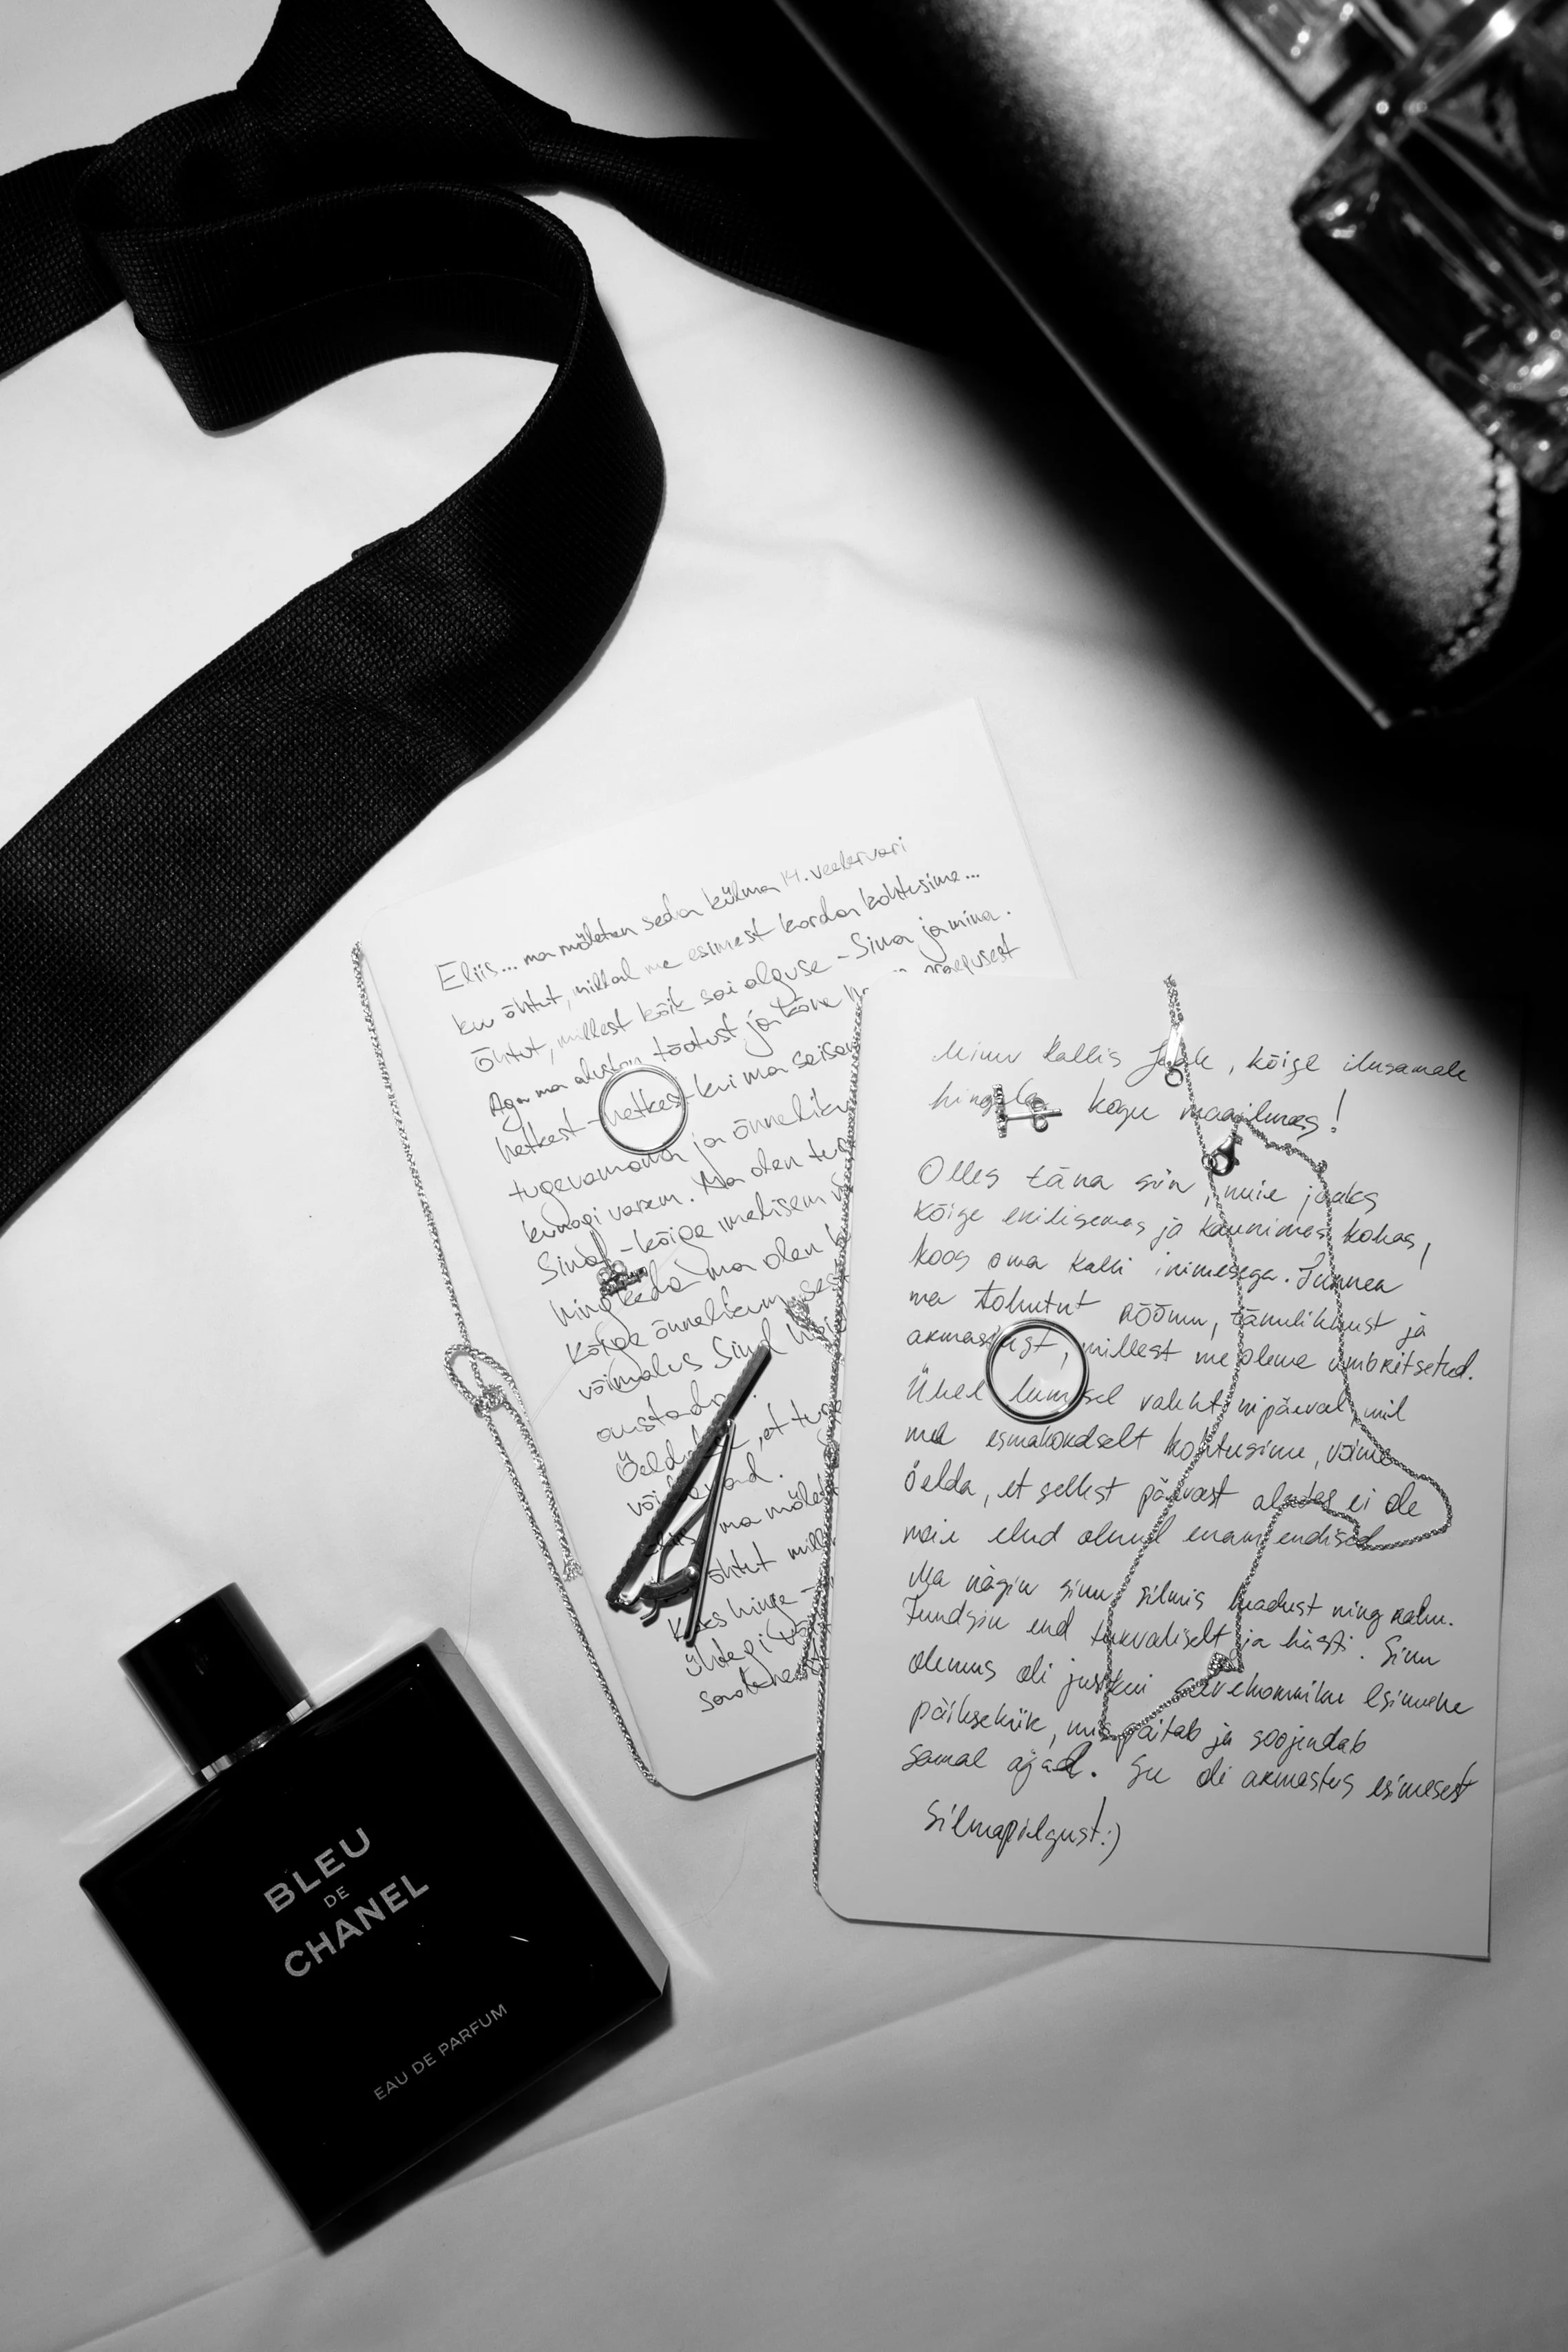 Eliis... ma mäletan seda külma 14. veebruari
kuu õhtut, millal me esimest korda kohtusime...
Õhtut, millest kõik sai alguse - Sina ja mina.
Aga ma alustan tõotust ja kõne
hetkest - hetkest kui ma seisan
tugevamana ja õnneliku
kunagi varem. Ma olen
Sind - kõige imelisem
hing keda ma olen
Kõige õnnelikum
võimalus Sind
austada.
Öeldakse, et
või
ma mäle
õhtut mill
Kaks hinge -
ühtegi
Minu kallis, kõige ilusamale
hingele kogu maailmas!
Olles täna siin, meie jaoks
kõige erilisemas ja kaunimas kohas,
koos oma kalli inimesega. Tunnen
ma tohutut rõõmu, tänulikkust ja
armastust, millest me oleme ümbritsetud.
Ühel lumisel valentinipäeval, mil
me esmakordselt kohtusime, võime
öelda, et sellest päevast alates ei ole
meie elud olnud enam endised.
Ma nägin sinu silmis headust ning rahu.
Tundsin end turvaliselt ja hästi. Sinu
olemus oli justkui suvehommiku esimene
päiksekiir, mis paitab ja soojendab
samal ajal. See oli armastus esimesest
silmapilgust:)
BLEU
DE
CHANEL
EAU DE PARFUM